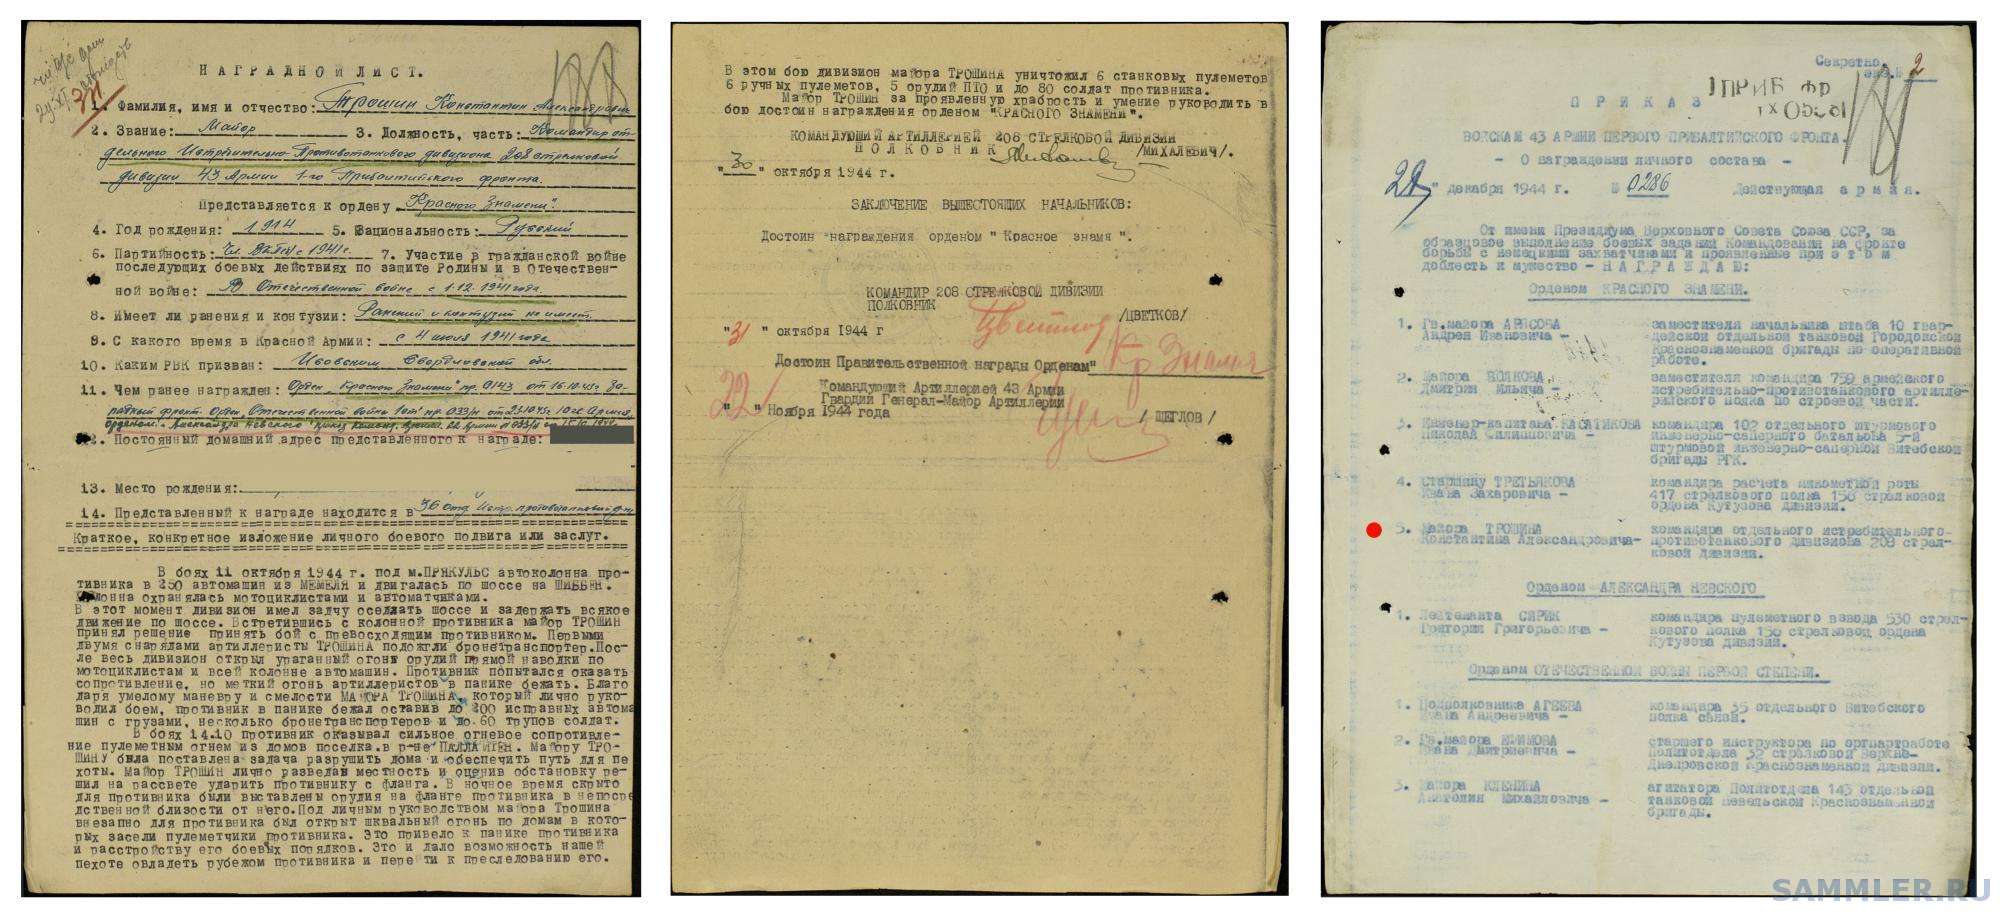 НАГРАДНОЙ ЛИСТ.
1. Фамилия, имя и отчество: Трошин Константин Александрович
2. Звание: Майор 3. Должность, часть: Командир от-
дельного Истребительно-Противотанкового дивизиона 208 стрелковой
дивизии 43 Армии 1-го Прибалтийского фронта.
Представляется к ордену "Красного Знамени".
4. Год рождения: 1914 5. Национальность: Русский
6. Партийность: Чл. ВКП(б) с 1941 г. 7. Участие в гражданской войне
последующих боевых действиях по защите Родины и в Отечествен-
ной войне: В Отечественной войне с 1.12.1941 года.
8. Имеет ли ранения и контузии: Ранений и контузий не имеет.
9. С какого время в Красной Армии: с 4 июля 1941 года
10. Каким РВК призван: Свердловской обл.
11. Чем ранее награжден: Орден "Красного Знамени" пр. 0143 от 16.10.43г. За-
падный фронт. Орден "Отечественной войны 1 ст" пр. 033/н от 23.10.43г. 10 гв Армия,
орденом "Александра Невского"
12. Постоянный домашний адрес представленного к награде:
13. Место рождения:
14. Представленный к награде находится в
Краткое, конкретное изложение личного боевого подвига или заслуг.
В боях 11 октября 1944 г. под м.ПРЯКУЛЬС автоколонна про-
тивника в 250 автомашин из МЕМЕЛЯ и двигалась по шоссе на
Колонна охранялась мотоциклистами и автоматчиками.
В этот момент дивизион имел задчу оседлать шоссе и задержать всякое
движение по шоссе. Встретившись с колонной противника майор ТРОШИН
принял решение принять бой с превосходящим противником. Первыми
двумя снарядами артиллеристы ТРОШИНА подожгли бронетранспортер.Пос-
ле весь дивизион открыл ураганный огонь орудий прямой наводки по
мотоциклистам и всей колонне автомашин. Противник попытался оказать
сопротивление, но меткий огонь артиллеристов в панике бежать. Благо
даря умелому маневру и смелости МАЙОРА ТРОШИНА, который лично руко-
водил боем, противник в панике бежал оставив до 200 исправных автома
шин с грузами, несколько бронетранспортеров и до 60 трупов солдат.
В боях 14.10 противник оказывал сильное огневое сопротивле-
ние пулеметным огнем из домов поселка.в р-не ПАЛЛАЙТЕН. Майору ТРО-
ШИНУ была поставлена задача разрушить дома и обеспечить путь для пе
хоты. Майор ТРОШИН лично разведав местность и оценив обстановку ре-
шил на рассвете ударить противнику с фланга. В ночное время скрыто
для противника были выставлены орудия на фланге противника в непосре
дственной близости от него.Под личным руководством майора Трошина
внезапно для противника был открыт шквальный огонь по домам в кото-
рых засели пулеметчики противника. Это привело к панике противника
и расстройству его боевых порядков. Это и дало возможность нашей
пехоте овладеть рубежом противника и перейти к преследованию его.
В этом бою дивизион майора ТРОШИНА уничтожил 6 станковых пулеметов
6 ручных пулеметов, 5 орудий ПТО и до 80 солдат противника.
Майор ТРОШИН за проявленную храбрость и умение руководить в
бою достоин награждения орденом "КРАСНОГО ЗНАМЕНИ".
КОМАНДУЮЩИЙ АРТИЛЛЕРИЕЙ 208 СТРЕЛКОВОЙ ДИВИЗИИ
ПОЛКОВНИК /МИХАЛЕВИЧ/.
"30" октября 1944 г.
ЗАКЛЮЧЕНИЕ ВЫШЕСТОЯЩИХ НАЧАЛЬНИКОВ:
Достоин награждения орденом " Красное знамя ".
КОМАНДИР 208 СТРЕЛКОВОЙ ДИВИЗИИ
ПОЛКОВНИК
/ЦВЕТКОВ/
"31" октября 1944 г
Достоин Правительственной награды Орденам" Кр Знамя
Командующий Артиллерией 43 Армии
Гвардии Генерал-Майор Артиллерии
"22" Ноября 1944 года / ЩЕГЛОВ /
Секретно.
экз.№ 2
1 ПРИБ ФР
ПРИКАЗ
ВОЙСКАМ 43 АРМИИ ПЕРВОГО ПРИБАЛТИЙСКОГО ФРОНТА.
- О награждении личного состава -
декабря 1944 г. № 0286 Действующая армия.
От имени Президиума Верховного Совета Союза ССР, за
образцовое выполнение боевых заданий Командования на фронте
борьбы с немецкими захватчиками и проявленные при этом
доблесть и мужество - НАГРАЖДАЮ:
Орденом КРАСНОГО ЗНАМЕНИ.
1. Гв.майора АРЯСОВА заместителя начальника штаба 10 гвар-
Андрея Ивановича - дейской отдельной танковой Городокской
Краснознаменной бригады по оперативной
работе.
2. Майора ВОЛКОВА заместителя командира 759 армейского
Дмитрия Ильича - истребительно-противотанкового артилле-
рийского полка по строевой части.
3. Инженер-капитана КАСАТИКОВА командира 102 отдельного штурмового
Николая Филипповича - инженерно-саперного батальона 5-й
штурмовой инженерно-саперной Витебской
бригады РГК.
4. Старшину ТРЕТЬЯКОВА командира расчета минометной роты
Ивана Захаровича - 417 стрелкового полка 156 стрелковой
ордена Кутузова дивизии.
5. Майора ТРОШИНА командира отдельного истребительного-
Константина Александровича- противотанкового дивизиона 208 стрел-
ковой дивизии.
Орденом АЛЕКСАНДРА НЕВСКОГО
1. Лейтенанта СИРИК командира пулеметного взвода 530 стрел-
Григория Григорьевича - кового полка 156 стрелковой ордена
Кутузова дивизии.
Орденом ОТЕЧЕСТВЕННОЙ ВОЙНЫ ПЕРВОЙ СТЕПЕНИ.
1. Подполковника АГЕЕВА командира 35 отдельного Витебского
Ивана Андреевича - полка связи.
2. Гв.майора ЕФИМОВА старшего инструктора по оргпартработе
Ивана Дмитриевича - политотдела 32 стрелковой Верхне-
Днепровской Краснознаменной дивизии.
3. Майора КЛЕНИНА агитатора Политотдела 143 отдельной
Анатолия Михайловича - танковой Невельской Краснознаменной
бригады.
SAMMLER.RU